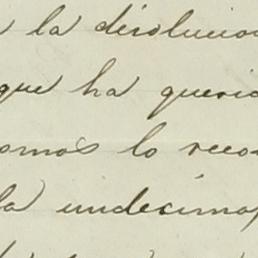 la disolucion
que ha queri
omos lo reco
la undecima,